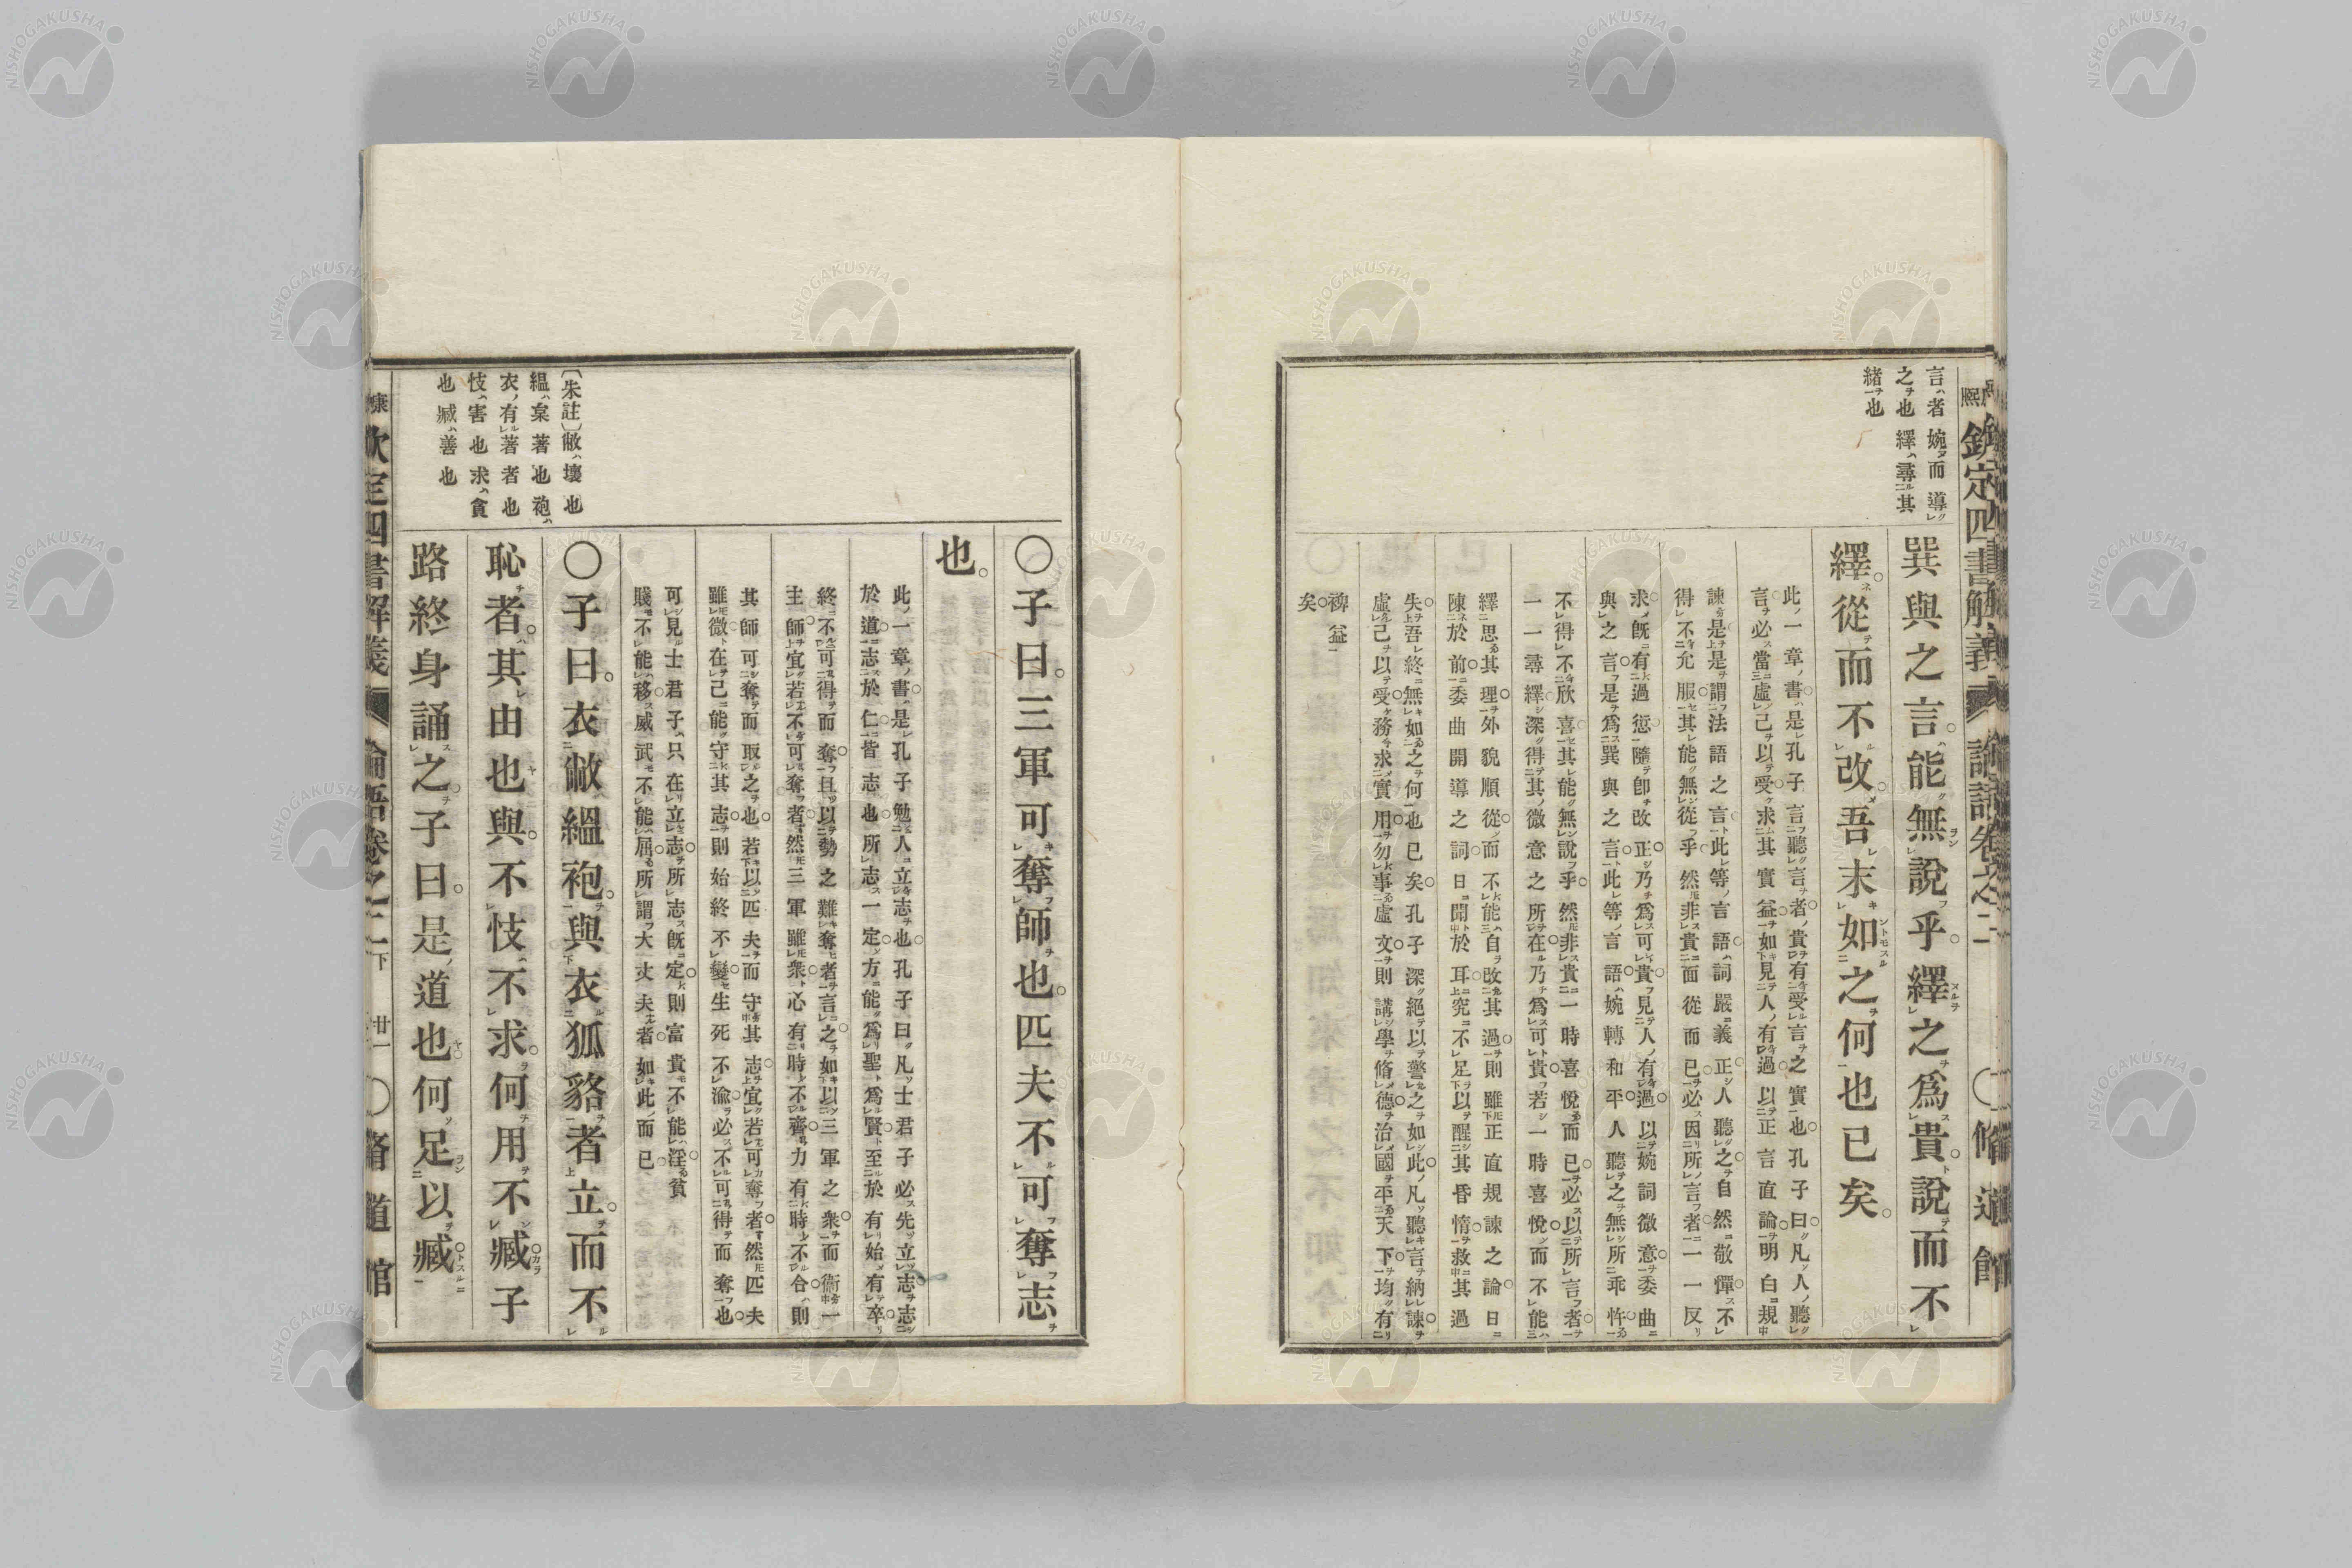 言者婉而導
之也繹尋其
緒也
巽與之言能無說乎繹之爲貴說而不
繹從而不改吾末如之何也已矣
此一章書是孔子言聽言者貴有受言之實也孔子曰凡人聽
言必當虛己以受求其實益如見人有過以正言直論明白規
諫是是謂法語之言此等言語詞嚴義正人聽之自然敬憚不
得不允服其能無從乎然非貴面從而已必因所言者一一反
求既有過愆隨卽改正乃爲可貴見人有過以婉詞微意委曲
與之言是爲巽與之言此等言語婉轉和平人聽之無所乖忤
不得不欣喜其能無說乎然非貴一時喜悅而已必以所言者
一一尋繹深得其微意之所在乃爲可貴若一時喜悅而不能
繹思其理外貌順從而不能自改其過則雖正直規諫之論日
陳於前委曲開導之詞日聞於耳究不足以醒其昏惰救其過
失吾終無如之何也已矣孔子深絕以警之如此凡聽言納諫
虛己以受務求實用勿事虛文則講學脩德治國平天下均有
裨益
矣
欽定四書解義 論語卷之二 脩道館
〇子曰三軍可奪師也匹夫不可奪志
也
此一章書是孔子勉人立志也孔子曰凡士君子必先立志志
於道志於仁皆志也所志一定方能爲聖爲賢至於有始有卒
終不可得而奪且以勢之難奪者言之如以三軍之衆而衞一
主師宜若不可奪者然三軍雖衆心有時不齊力有時不合則
其師可奪而取之也若以匹夫而守其志宜若可奪者然匹夫
雖微在己能守其志則始終不變生死不渝必不可得而奪也
可見士君子只在立志所志旣定則富貴不能淫貧
賤不能移威武不能屈所謂大丈夫者如此而已
〔朱註〕敝壞也
縕枲著也袍
衣有著者也
忮害也求貪
也臧善也
〇子曰衣敝縕袍與衣狐貉者立而不
恥者其由也與不忮不求何用不臧子
路終身誦之子曰是道也何足以臧
欽定四書解義 論語卷之二 下 廿一 〇脩道館
NISHOGAKUSHA